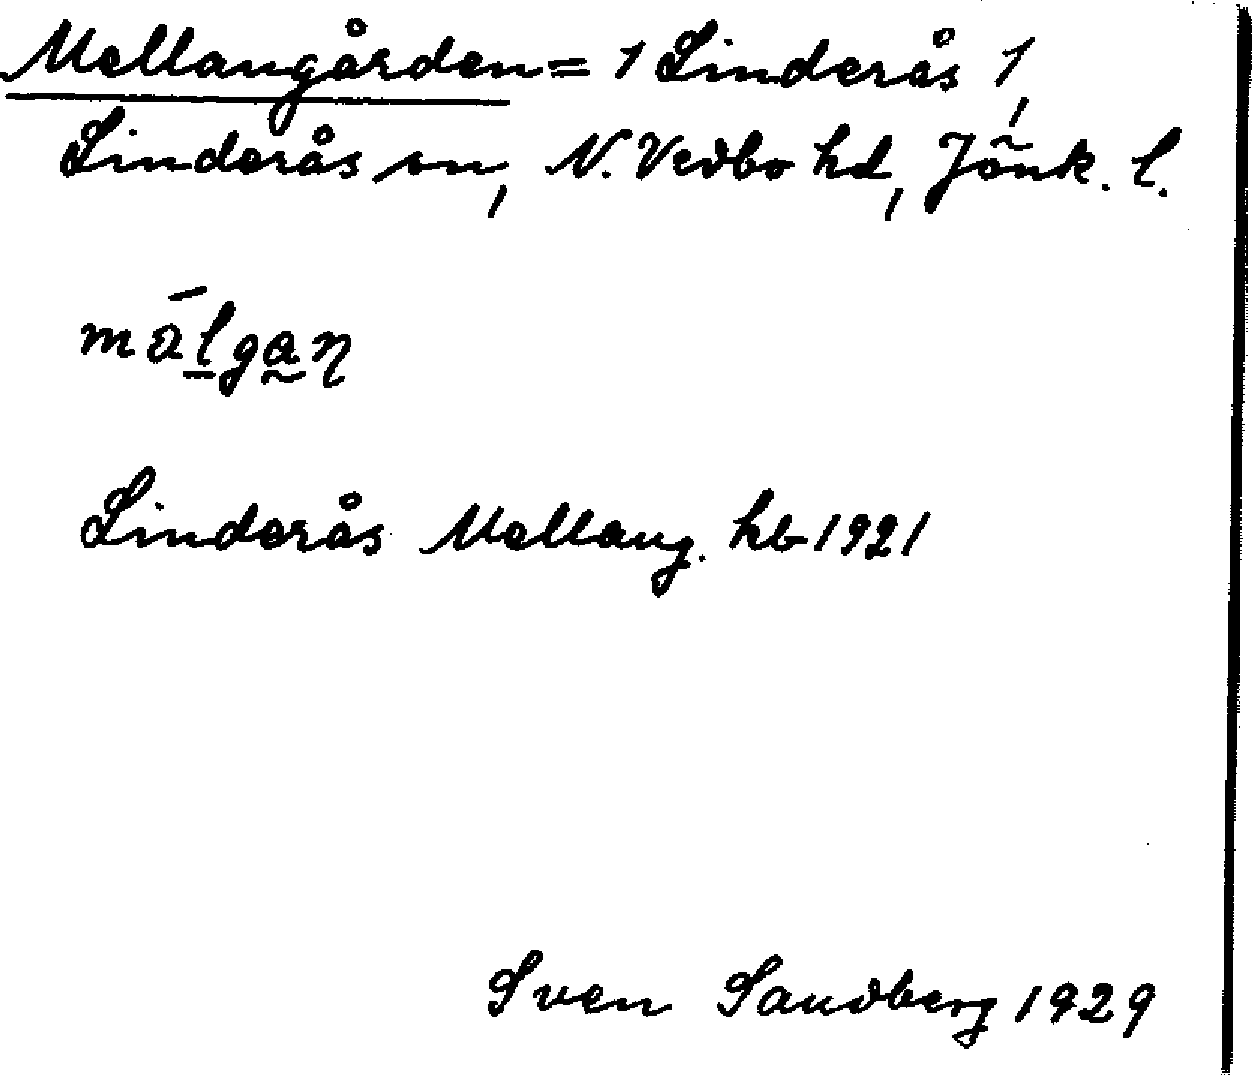 Mellangården = 1 Linderås 1,
Linderås sn, N. Vedbo hd, Jönk. l.
målgan
Linderås Mellang. hb 1921
Sven Sandberg 1929